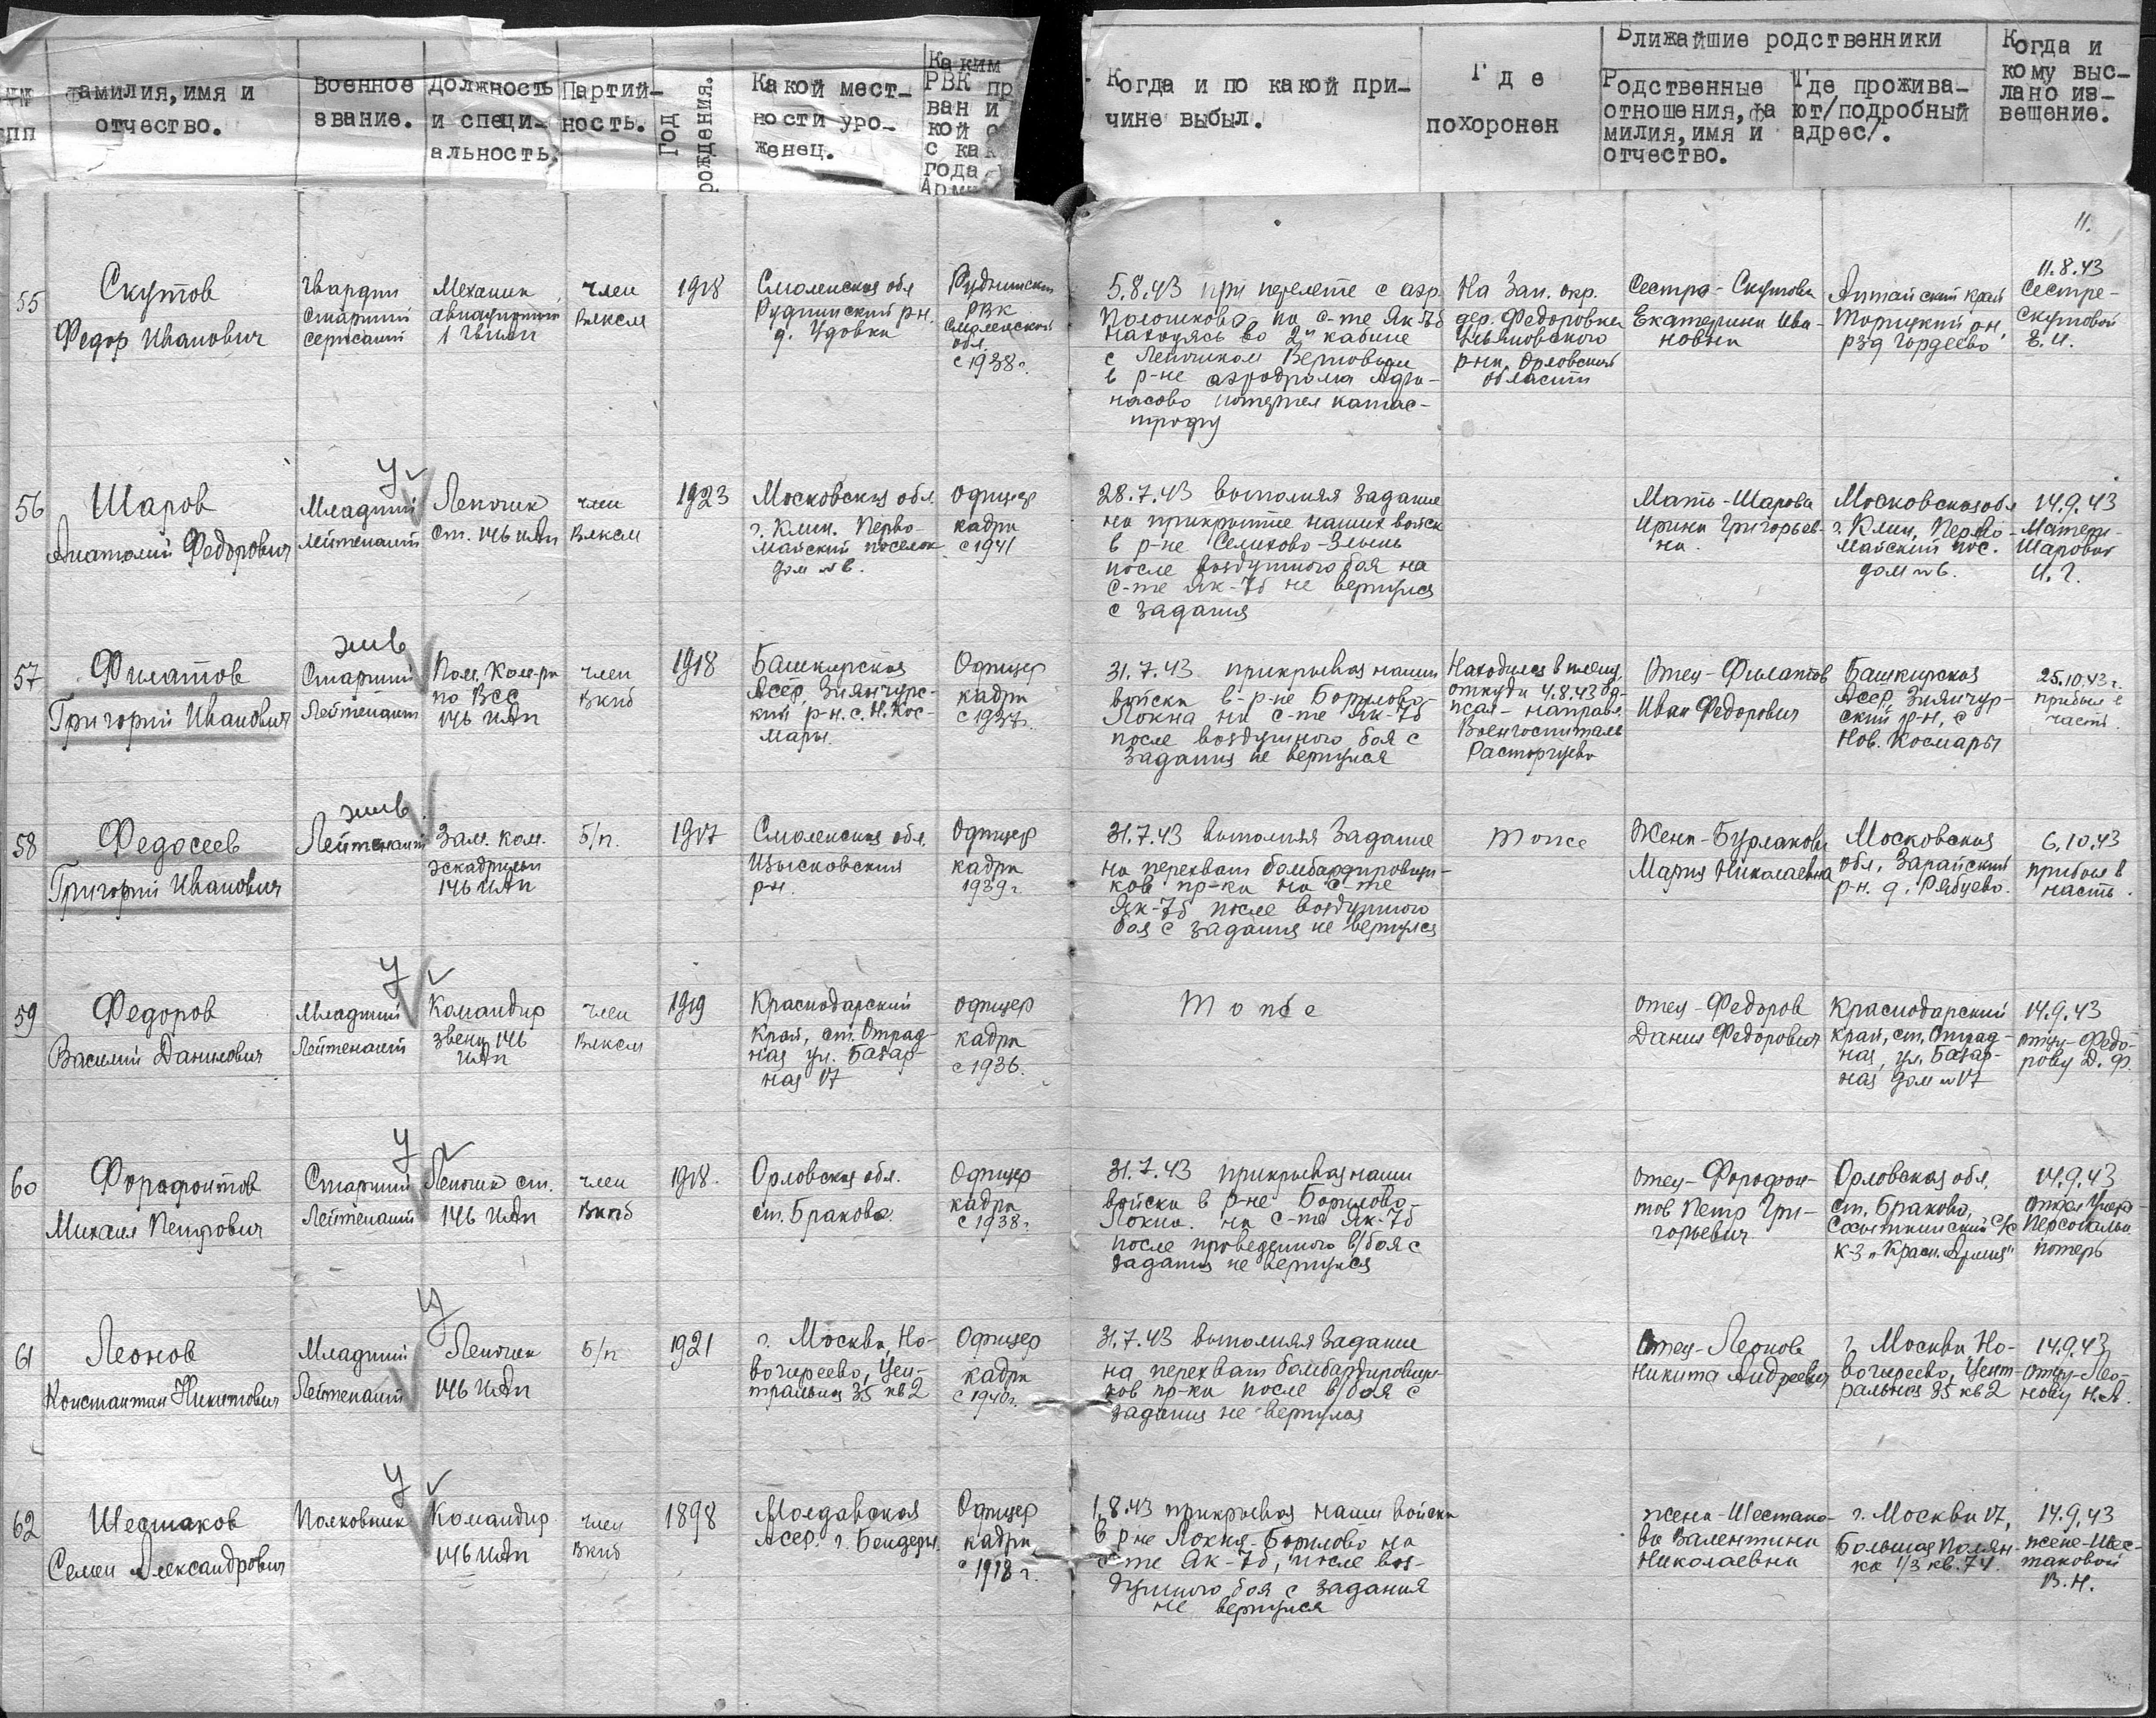 №№ пп
Фамилия, имя и отчество.
Военное звание.
Должность и специальность.
Партийность.
Год рождения.
Какой местности уроженец.
Каким РВК пр
ван и
кой
с как
года
Арми
Когда и по какой причине выбыл.
Где похоронен
Ближайшие родственники
Родственные отношения, фамилия, имя и отчество.
Где проживают /подробный адрес/.
Когда и кому выслано извещение.
11.
55
Скутов
Федор Иванович
Гвардии
Старший
сержант
Механик
авиационный
1 Гиап
член
Влксм
1918
Смоленская обл
Руднинский р-н.
д. Удовка
Руднинским
РВК
Смоленской
обл.
с 1938 г.
5.8.43 при перелете с аэр.
на с-те Як-7б
находясь во 2й кабине
с Летчиком
в р-не аэродрома Афа-
насово потерпел катас-
трофу
На Зап. окр.
дер. Федоровка
Ульяновского
р-на, Орловской
области
Сестра - Скутова
Екатерина Ива-
новна
Алтайский край
р-н,
рзд Гордеево
11.8.43
Сестре -
Скутовой
Е.И.
56
Шаров
Анатолий Федорович
У
Младший
лейтенант
Летчик
ст. 146 иАп
член
Влксм
1923
Московская обл.
г. Клин. Перво-
майский поселок
дом №6.
Офицер
кадра
с 1941
28.7.43 выполняя задание
на прикрытие наших войск
в р-не Селихово-Злынь
после воздушного боя на
с-те Як-7б не вернулся
с задания
Мать - Шарова
Ирина Григорьев-
на.
Московская обл
г. Клин, Перво-
майский пос.
дом №6.
14.9.43
Матери -
Шаровой
И.Г.
57
Филатов
Григорий Иванович
жив
Старший
Лейтенант
Пом. Ком-ра
по ВСС
146 иАп
член
Вкпб
1918
Башкирская
Асср, Зианчурс-
кий р-н. с. Н. Кос-
мары.
Офицер
кадра
с 1937г.
31.7.43 прикрывая наши
войска в р-не Борилово-
Локна на с-те Як-7б
после воздушного боя с
задания не вернулся
Находился в плену,
откуда 4.8.43 бе-
жал - направл.
Военгоспиталь
Расторгуево
Отец - Филатов
Иван Федорович
Башкирская
Асср, Зианчур-
ский р-н, с
Нов. Космары
25.10.43 г.
прибыл в
часть.
58
Федосеев
Григорий Иванович
жив
Лейтенант
Зам. ком.
эскадрильи
146 иАп
б/п.
1917
Смоленская обл.
р-н.
Офицер
кадра
1939 г.
31.7.43 выполняя Задание
на перехват бомбардировщи-
ков пр-ка на с-те
Як-7б после воздушного
боя с задания не вернулся
тоже
Жена - Бурлакова
Мария Николаевна
Московская
обл, Зарайский
р-н. д. Рябцево.
6.10.43
прибыл в
часть.
59
Федоров
Василий Данилович
У
Младший
Лейтенант
Командир
звена 146
иАп
член
Влксм
1919
Краснодарский
край, ст. Отрад-
ная ул. Базар-
ная 17
Офицер
кадра
с 1936.
Тоже
Отец - Федоров
Данил Федорович
Краснодарский
край, ст. Отрад-
ная, ул. Базар-
ная дом №17
14.9.43
отцу - Федо-
рову Д.Ф.
60
Форафонтов
Михаил Петрович
У
Старший
Лейтенант
Летчик ст.
146 иАп
член
Вкпб
1918.
Орловская обл.
ст. Бракова.
Офицер
кадра
с 1938 г.
31.7.43 прикрывая наши
войска в р-не Борилово-
Локна. на с-те Як-7б
после проведенного в/боя с
задания не вернулся
Отец - Форофон-
тов Петр Гри-
горьевич
Орловская обл.
ст. Бракова,
с/с
к-з „Красн. Армия"
14.9.43
Отдел Учета
Персональн.
потерь
61
Леонов
Константин Никитович
У
Младший
Лейтенант
Летчик
146 иАп
б/п
1921
г. Москва, Но-
вогиреево, Цен-
тральная 35 кв 2
Офицер
кадра
с 1940г.
31.7.43 выполняя Задание
на перехват бомбардировщи-
ков пр-ка после в/боя с
задания не вернулся
Отец - Леонов
Никита Андреевич
г. Москва Но-
вогиреево, Цент-
ральная 35 кв 2
14.9.43
Отцу - Лео-
нову Н.А.
62
Шестаков
Семен Александрович
У
Полковник
Командир
146 иАп
член
Вкпб
1898
Молдавская
Асср. г. Бендеры.
Офицер
кадра
с 1918 г.
1.8.43 прикрывая наши войска
в р-не Локня-Борилово на
с-те Як-7б, после воз-
душного боя с задания
не вернулся
жена - Шестако-
ва Валентина
Николаевна
г. Москва 17,
Большая Полян-
ка 1/3 кв. 74.
14.9.43
жене - Шес-
таковой
В.Н.